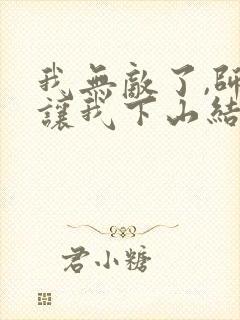 我無敵了,師
讓我下山結
君小糖